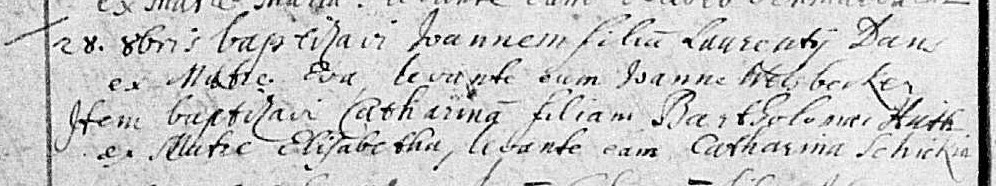 ex Matre Maria. levante eam
28. 8bris baptizavi Joannem filiū Laurentij Dans
ex Matre Eva, levante eum Joanne Weisbecker
Item baptizavi Catharinā filiam Bartholomæi Huth
ex Matre Elisabetha, levante eam Catharina Schickin